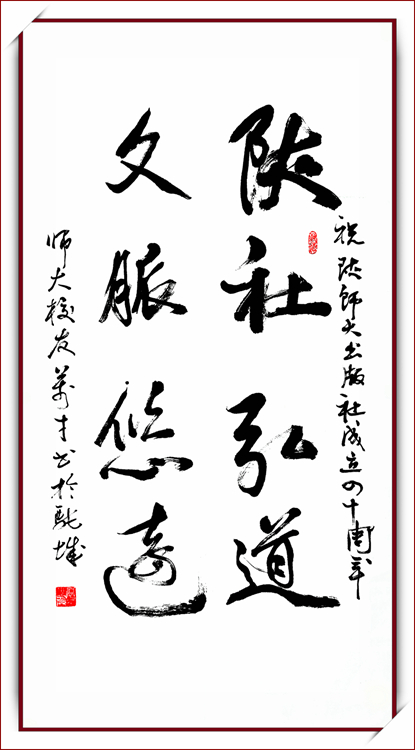 祝陕师大出版社成立四十周年
陕社弘道
文脉悠远
师大校友万才书于驼城